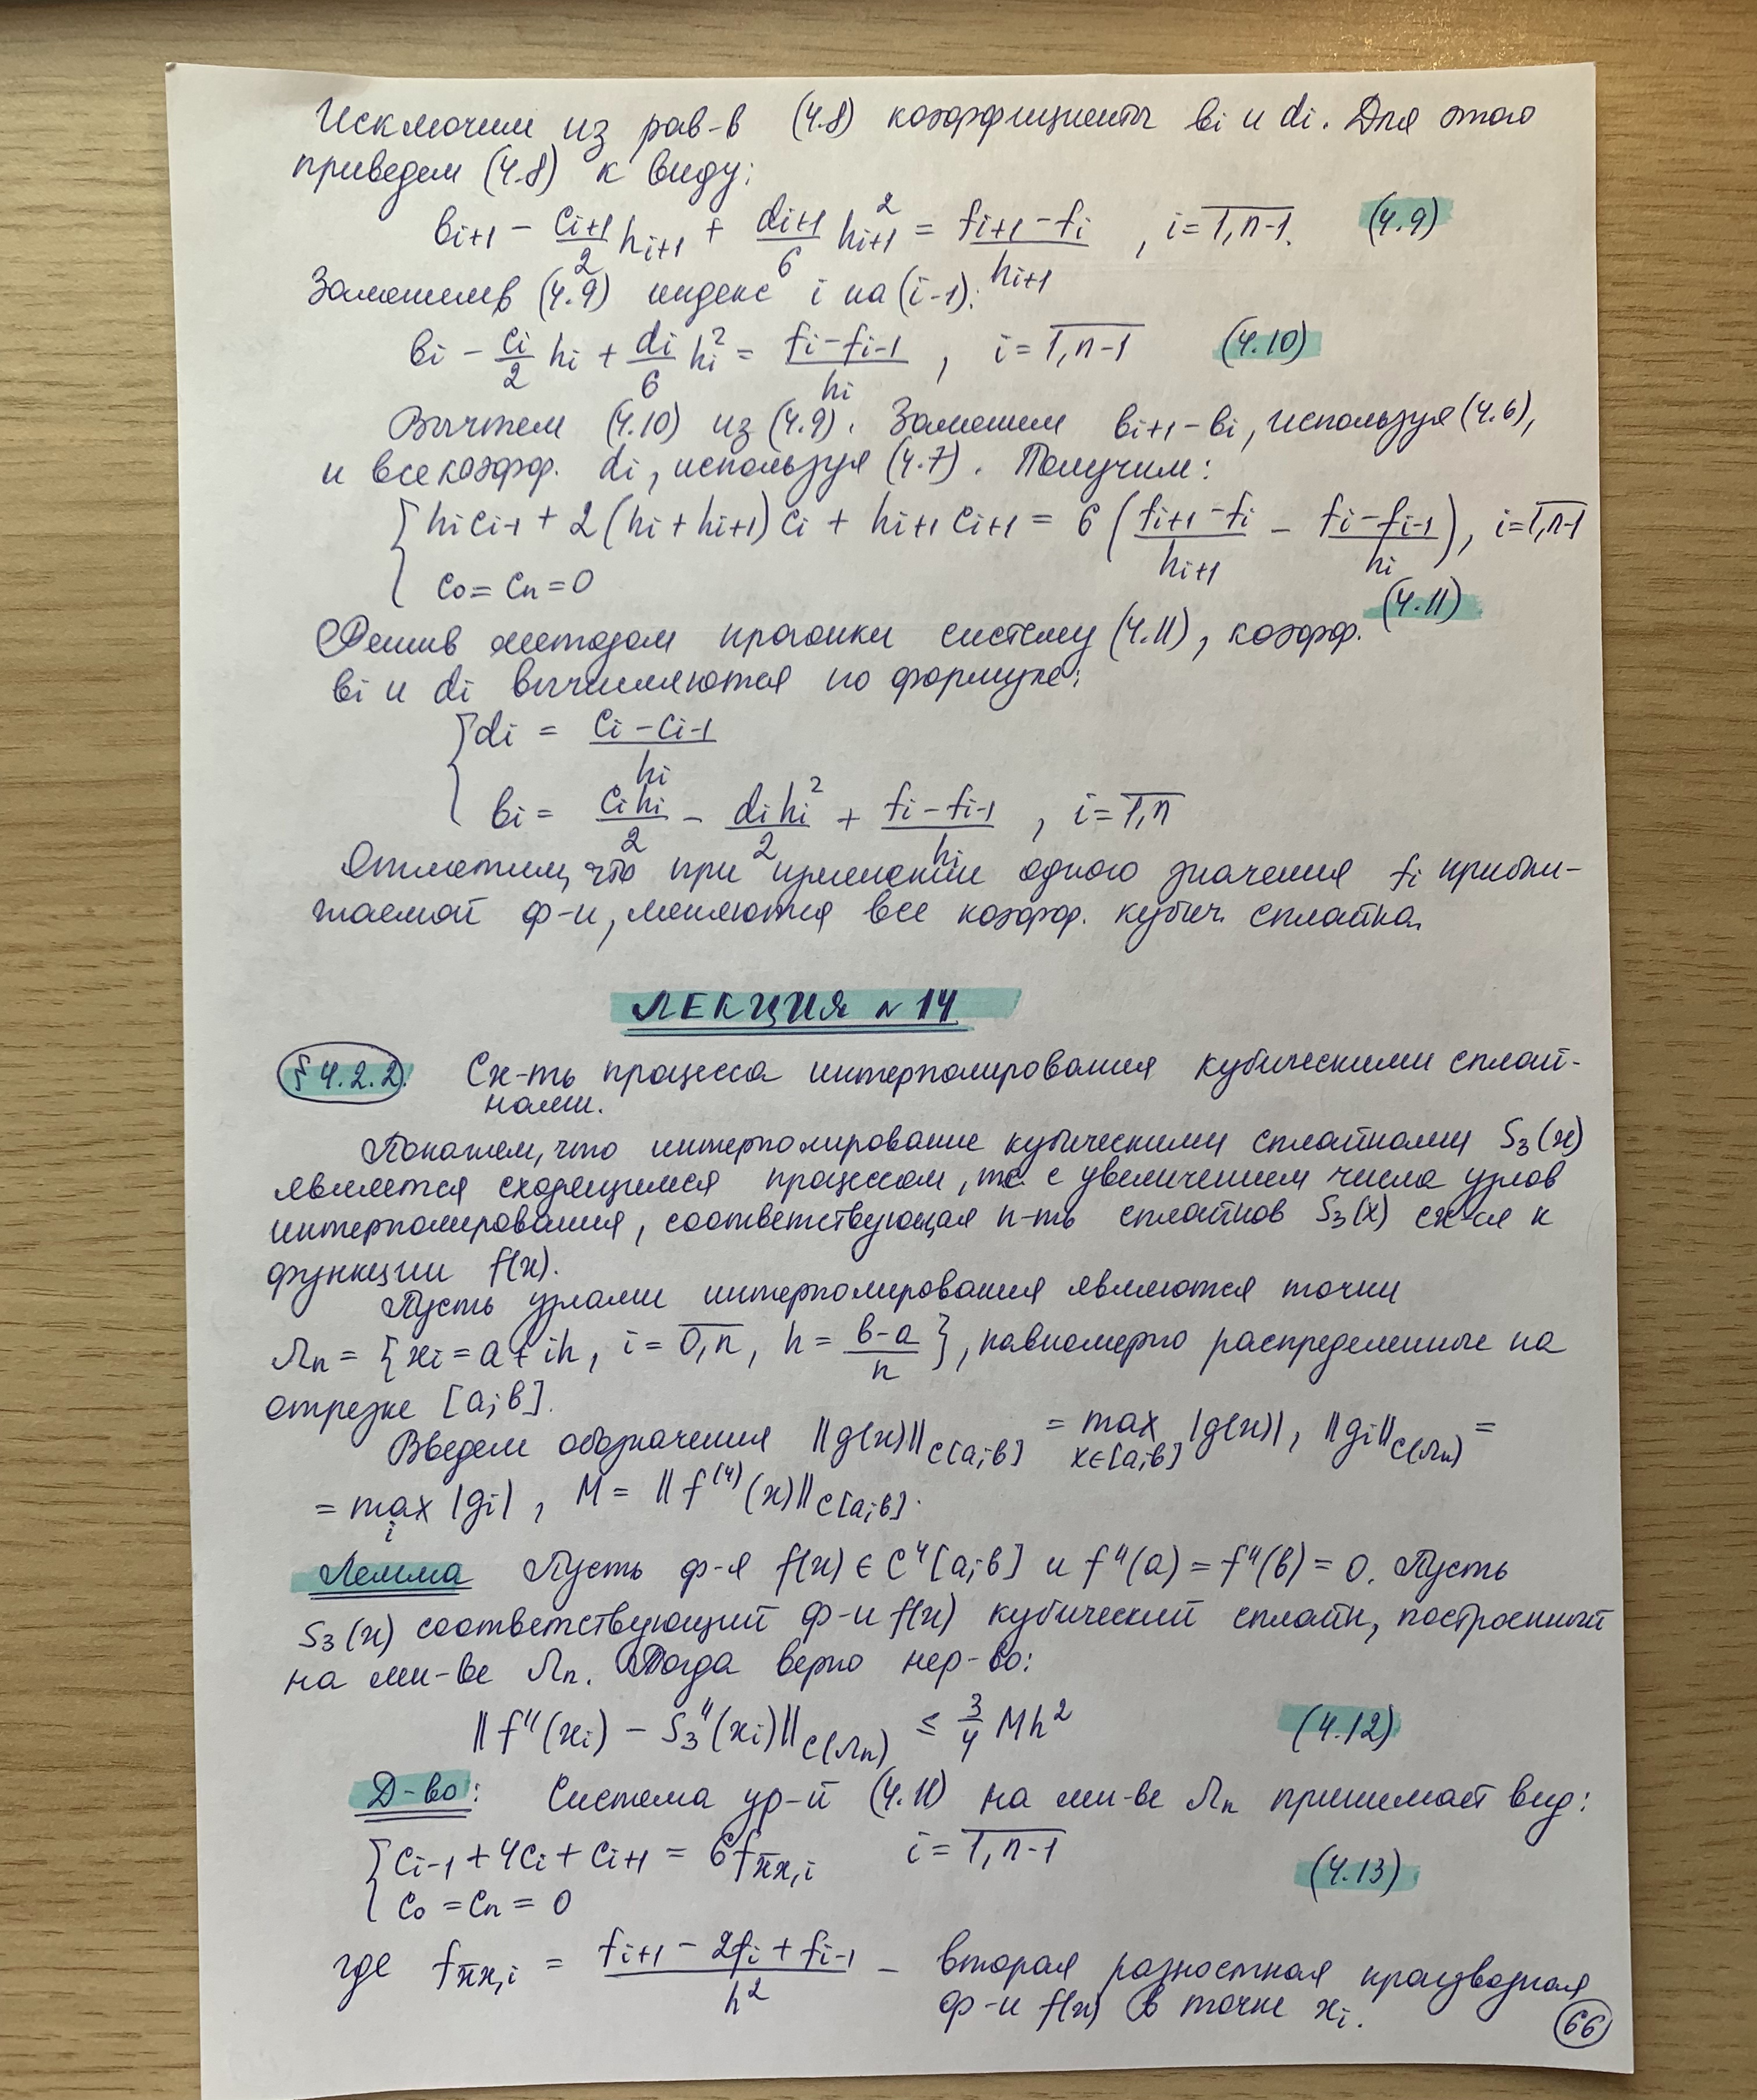 Исключим из рав-в (4.8) коэффициенты bi и di. Для этого
приведем (4.8) к виду:
b_{i+1} - \frac{c_{i+1}}{2} h_{i+1} + \frac{d_{i+1}}{6} h_{i+1}^2 = \frac{f_{i+1} - f_i}{h_{i+1}}, i = \overline{1,n-1}. (4.9)
Заменив (4.9) индекс i на (i-1):
b_i - \frac{c_i}{2} h_i + \frac{d_i}{6} h_i^2 = \frac{f_i - f_{i-1}}{h_i}, i = \overline{1,n-1} (4.10)
Вычтем (4.10) из (4.9). Заменим b_{i+1} - b_i, используя (4.6),
и все коэфф. di, используя (4.7). Получим:
{ h_i c_{i-1} + 2(h_i + h_{i+1}) c_i + h_{i+1} c_{i+1} = 6 ( \frac{f_{i+1} - f_i}{h_{i+1}} - \frac{f_i - f_{i-1}}{h_i} ), i = \overline{1,n-1}
c_0 = c_n = 0 (4.11)
Решив методом прогонки систему (4.11), коэфф.
bi и di вычисляются по формуле:
{ d_i = \frac{c_i - c_{i-1}}{h_i}
b_i = \frac{c_i h_i}{2} - \frac{d_i h_i^2}{2} + \frac{f_i - f_{i-1}}{h_i}, i = \overline{1,n}
Отметим, что при изменении одного значения fi прибли-
жаемой ф-и, меняются все коэфф. кубич. сплайна.
ЛЕКЦИЯ N 14
§ 4.2.2. Сх-ть процесса интерполирования кубическими сплай-
нами.
Покажем, что интерполирование кубическими сплайнами S_3(x)
является сходящимся процессом, т.е. с увеличением числа узлов
интерполирования, соответствующая п-ть сплайнов S_3(x) сх-ся к
функции f(x).
Пусть узлами интерполирования являются точки
Λ_n = { x_i = a + ih, i = \overline{0,n}, h = \frac{b-a}{n} }, равномерно распределенные на
отрезке [a;b].
Введем обозначения ||g(x)||_{C[a;b]} = \max_{x∈[a;b]} |g(x)|, ||g_i||_{C(Λ_n)} =
= \max_i |g_i|, M = ||f^{(4)}(x)||_{C[a;b]}.
Лемма Пусть ф-я f(x) ∈ C^4[a;b] и f''(a) = f''(b) = 0. Пусть
S_3(x) соответствующий ф-и f(x) кубический сплайн, построенный
на мн-ве Λ_n. Тогда верно нер-во:
||f''(x_i) - S_3''(x_i)||_{C(Λ_n)} ≤ \frac{3}{4} Mh^2 (4.12)
Д-во: Система ур-й (4.11) на мн-ве Λ_n принимает вид:
{ c_{i-1} + 4c_i + c_{i+1} = 6f_{\overline{x}x,i} i = \overline{1,n-1}
c_0 = c_n = 0 (4.13)
где f_{\overline{x}x,i} = \frac{f_{i+1} - 2f_i + f_{i-1}}{h^2} - вторая разностная производная
ф-и f(x) в точке x_i.
66